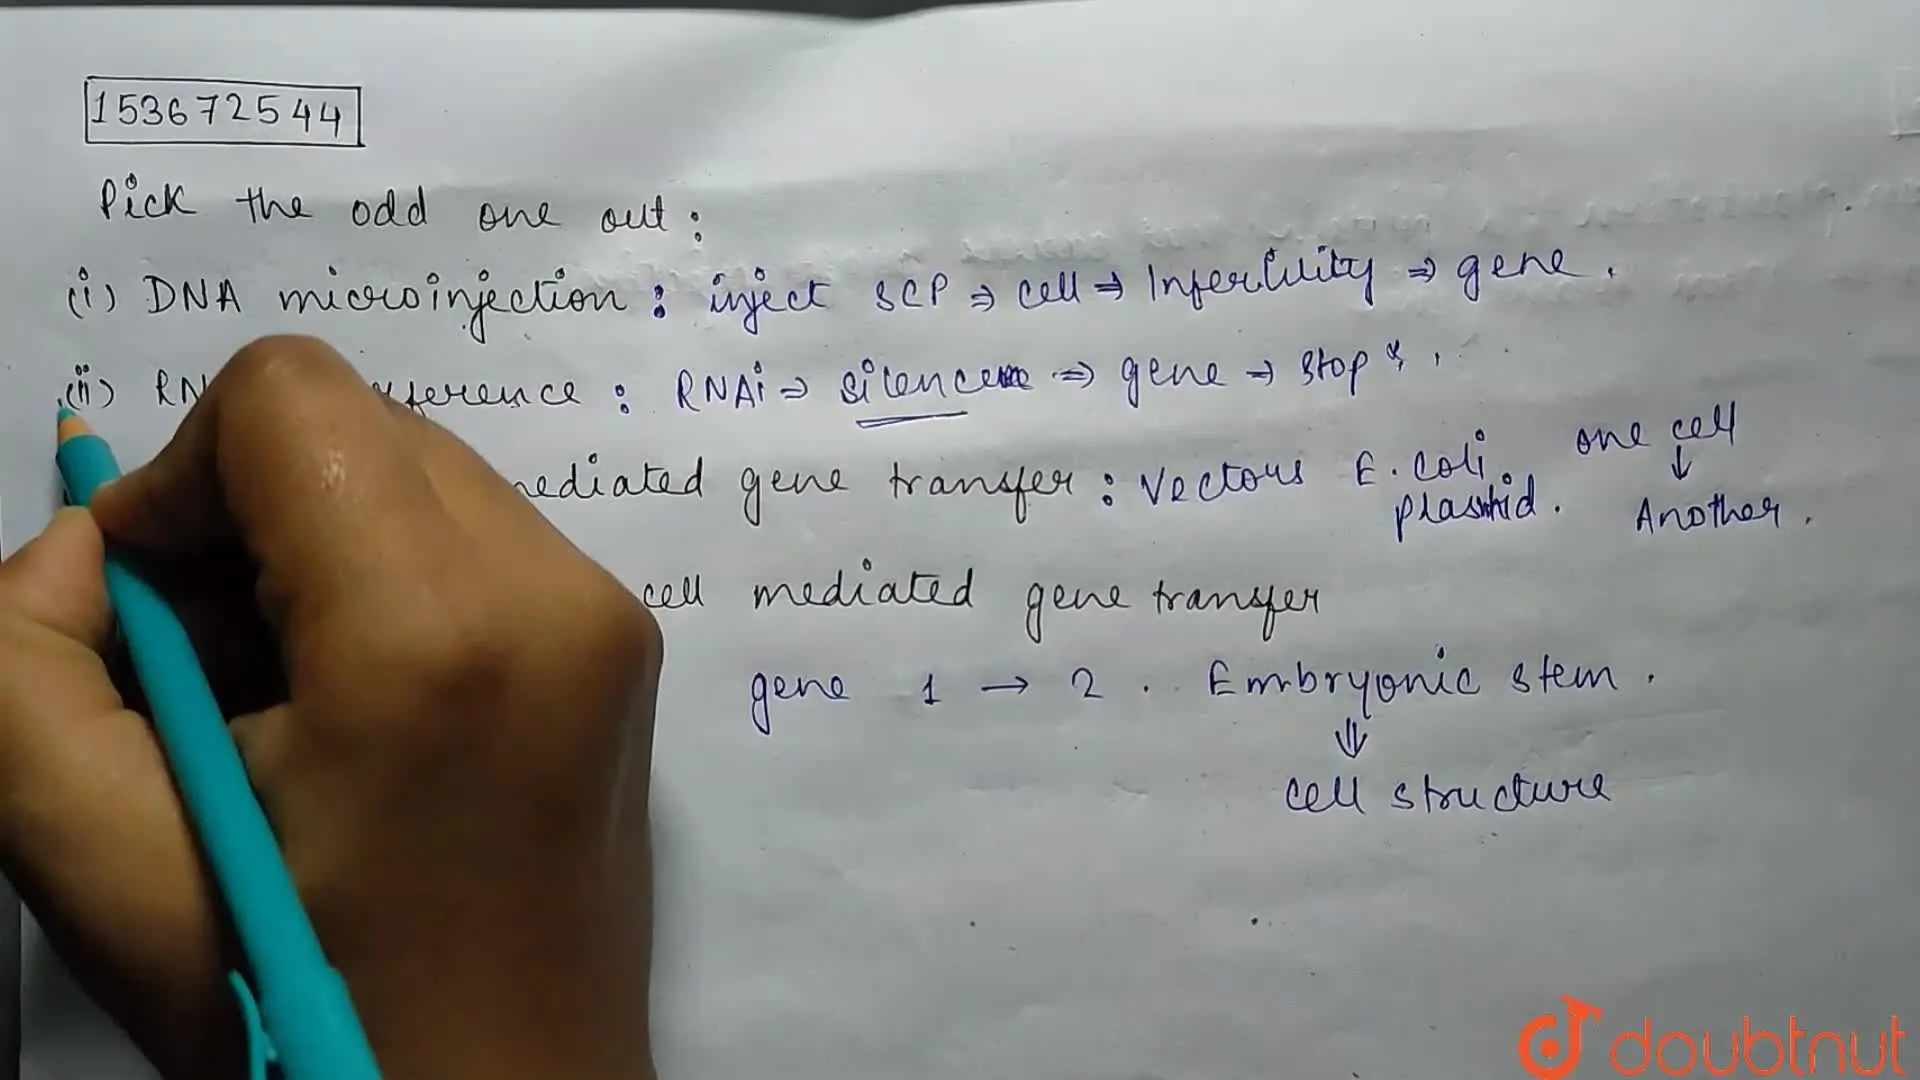 153672544
Pick the odd one out:
(i) DNA microinjection : inject SCP ⇒ cell ⇒ Infertility ⇒ gene.
(ii) RN ference : RNAi ⇒ silence ⇒ gene → stop
mediated gene transfer : Vectors E. coli plasmid. one cell ↓ Another.
cell mediated gene transfer
gene 1 → 2 . Embryonic stem.
⇓
cell structure
doubtnut